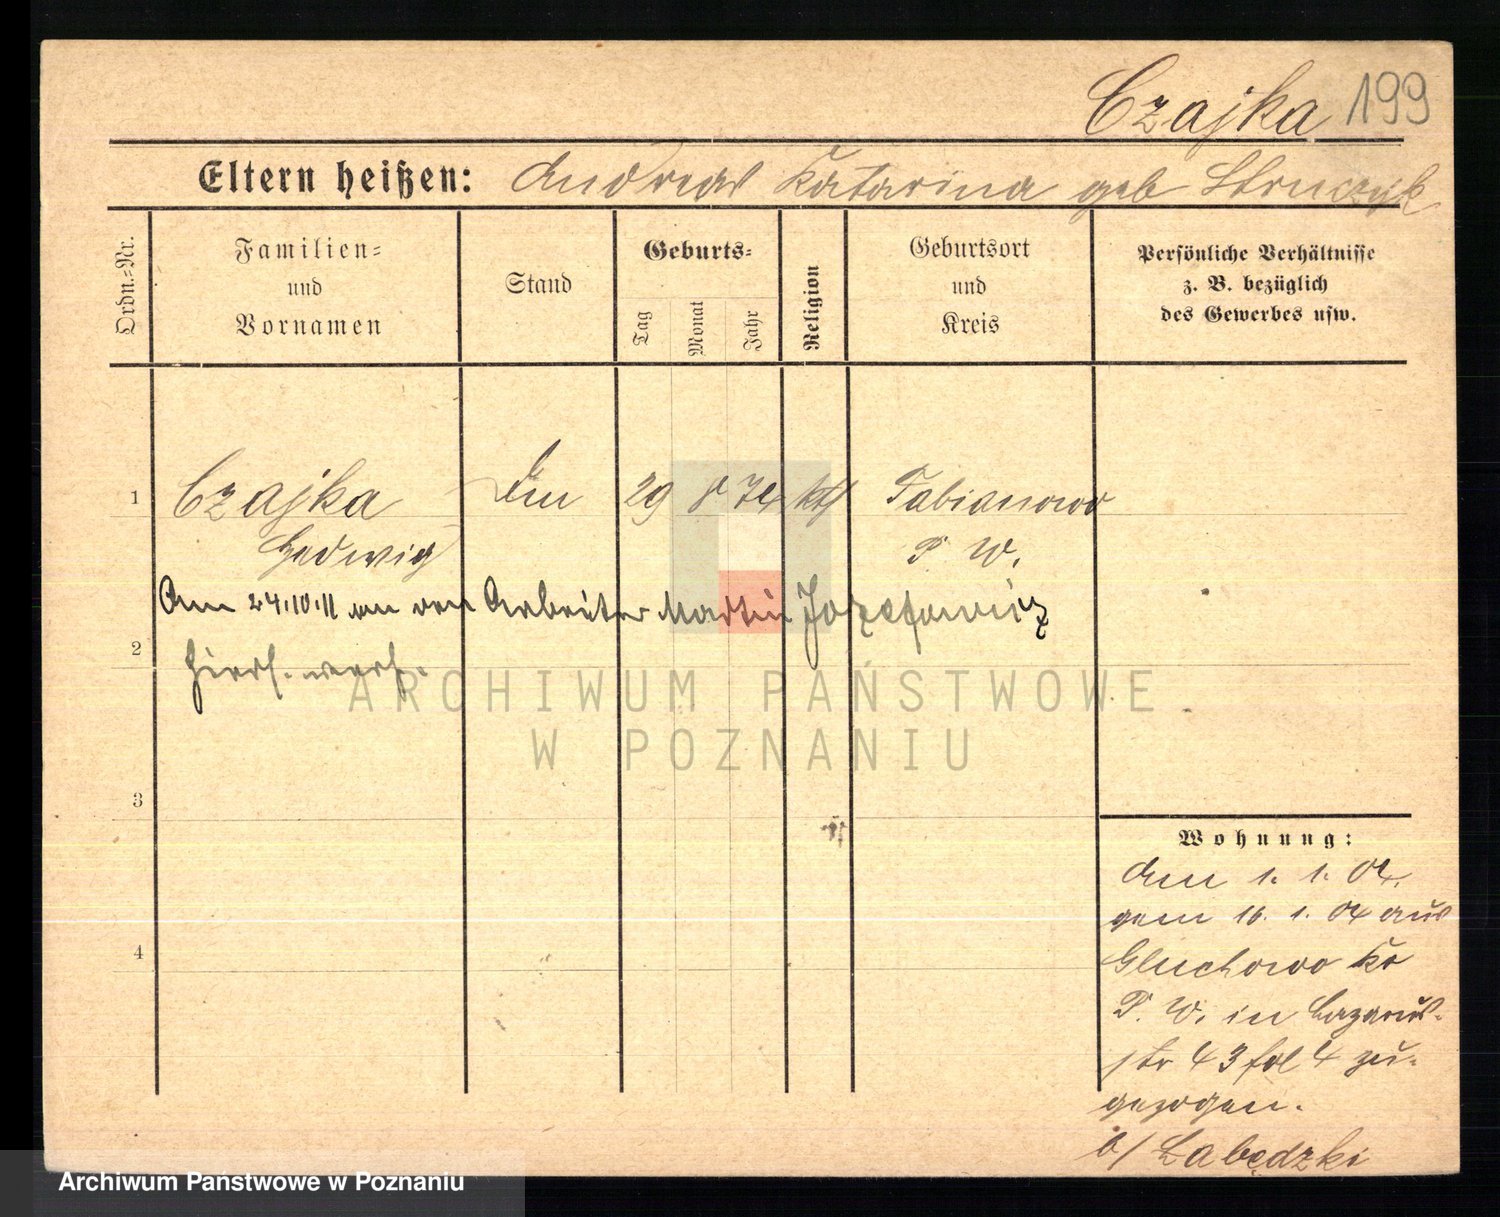 Czajka 199
Eltern heißen: Andreas Katarina geb
Ordn.=Nr.
Familien=
und
Vornamen
Stand
Geburts=
Tag
Monat
Jahr
Religion
Geburtsort
und
Kreis
Persönliche Verhältnisse
z. B. bezüglich
des Gewerbes usw.
1 Czajka 29 8 74 kth Fabianowo
Hedwig P. W.
Am 24.10.11 an den Arbeiter Martin Jozefowicz
2 hiers. verh.
ARCHIWUM PAŃSTWOWE
W POZNANIU
3
Wohnung:
den 1. 1. 04.
gem 16. 1. 04 aus
4 Gluchowo Kr
P. W. in Lazarus-
str 43 fol 4 zu-
gezogen.
b/ Łabędzki
Archiwum Państwowe w Poznaniu